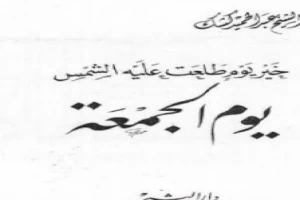 الشيخ عبد الحميد كشك
خَيْر يَوم طَلعَت عَلَيْه الشَّمْس
يوم الجُمْعَة